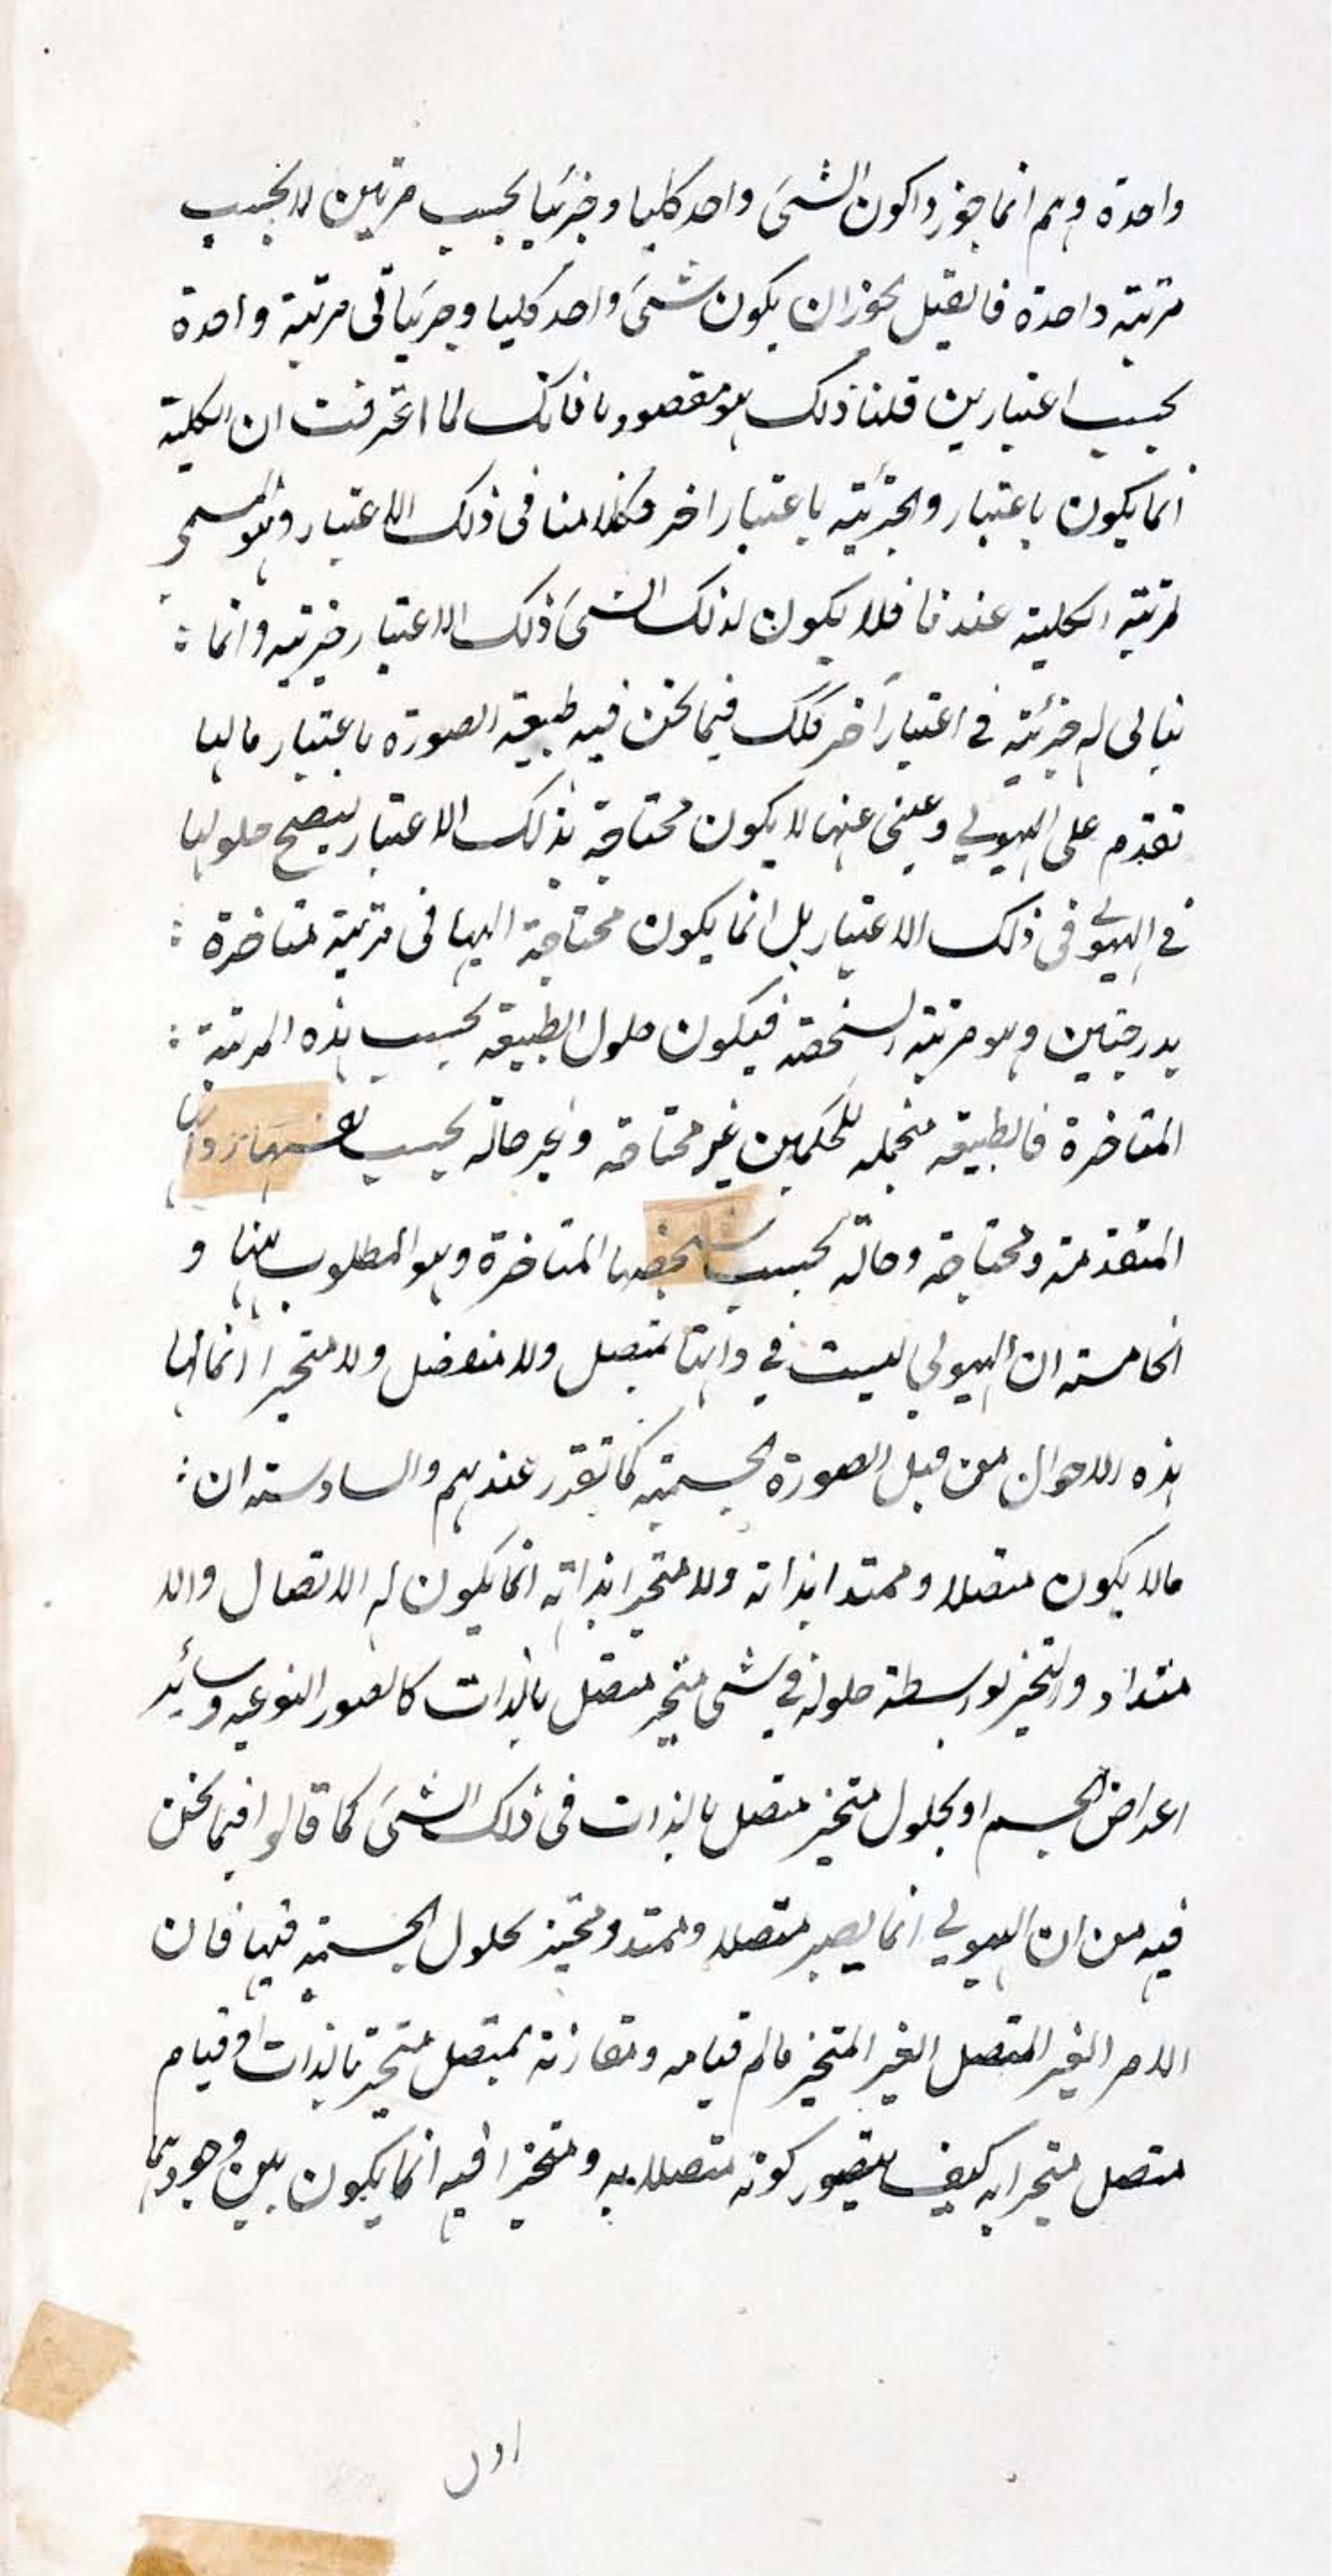 واحدة وهم انما جوزوا كون الشىء واحد كليا وجزئيا بحسب مرتبتين لا بحسب
مرتبة واحدة فان قيل يجوز ان يكون شىء واحد كليا وجزئيا فى مرتبة واحدة
بحسب اعتبارين قلنا ذلك هو مقصودنا فانك لما اعترفت ان الكلية
انما يكون باعتبار والجزئية باعتبار اخر فكلامنا فى ذلك الاعتبار وهو المسمى
مرتبة الكلية عندنا فلا يكون لذلك الشىء ذلك الاعتبار جزئية وانما
له جزئية فى اعتبار آخر فكك فيما نحن فيه طبيعة الصورة باعتبار ما لها
تقدم على الهيولى وغنى عنها لا يكون محتاجة بذلك الاعتبار ليصح حلولها
فى الهيولى فى ذلك الاعتبار بل انما يكون محتاجة اليها فى مرتبة متاخرة
بدرجتين وهو مرتبة الشخصة فيكون حلول الطبيعة بحسب هذه المرتبة
المتاخرة فالطبيعة متحملة للحكمين غير محتاجة وغير حالة بحسب نفسها
المتقدمة ومحتاجة وحالة بحسب تشخصها المتاخرة وهو المطلوب ههنا و
الخامسة ان الهيولى ليست فى ذاتها بمتصل ولا منفصل ولا متحيز انما لها
هذه الاحوال من قبل الصورة الجسمية كما تقرر عندهم والسادسة ان
مالا يكون متصلا وممتدا بذاته ولا متحيزا بذاته انما يكون له الاتصال والا
متداد والتحيز بواسطة حلوله فى شىء متحيز متصل بالذات كالصور النوعية وسائر
اعراض الجسم او بحلول متحيز متصل بالذات فى ذلك الشىء كما قالوا فيما نحن
فيه من ان الهيولى انما يصير متصلا وممتد ومتحيز بحلول الجسمية فيها فان
الامر الغير المتصل الغير المتحيز مالم قيامه ومقارنة بمتصل متحيز بالذات او قيام
متصل متحيز به كيف يتصور كونه متصلا به ومتحيزا فيه انما يكون بين وجودهما
اول